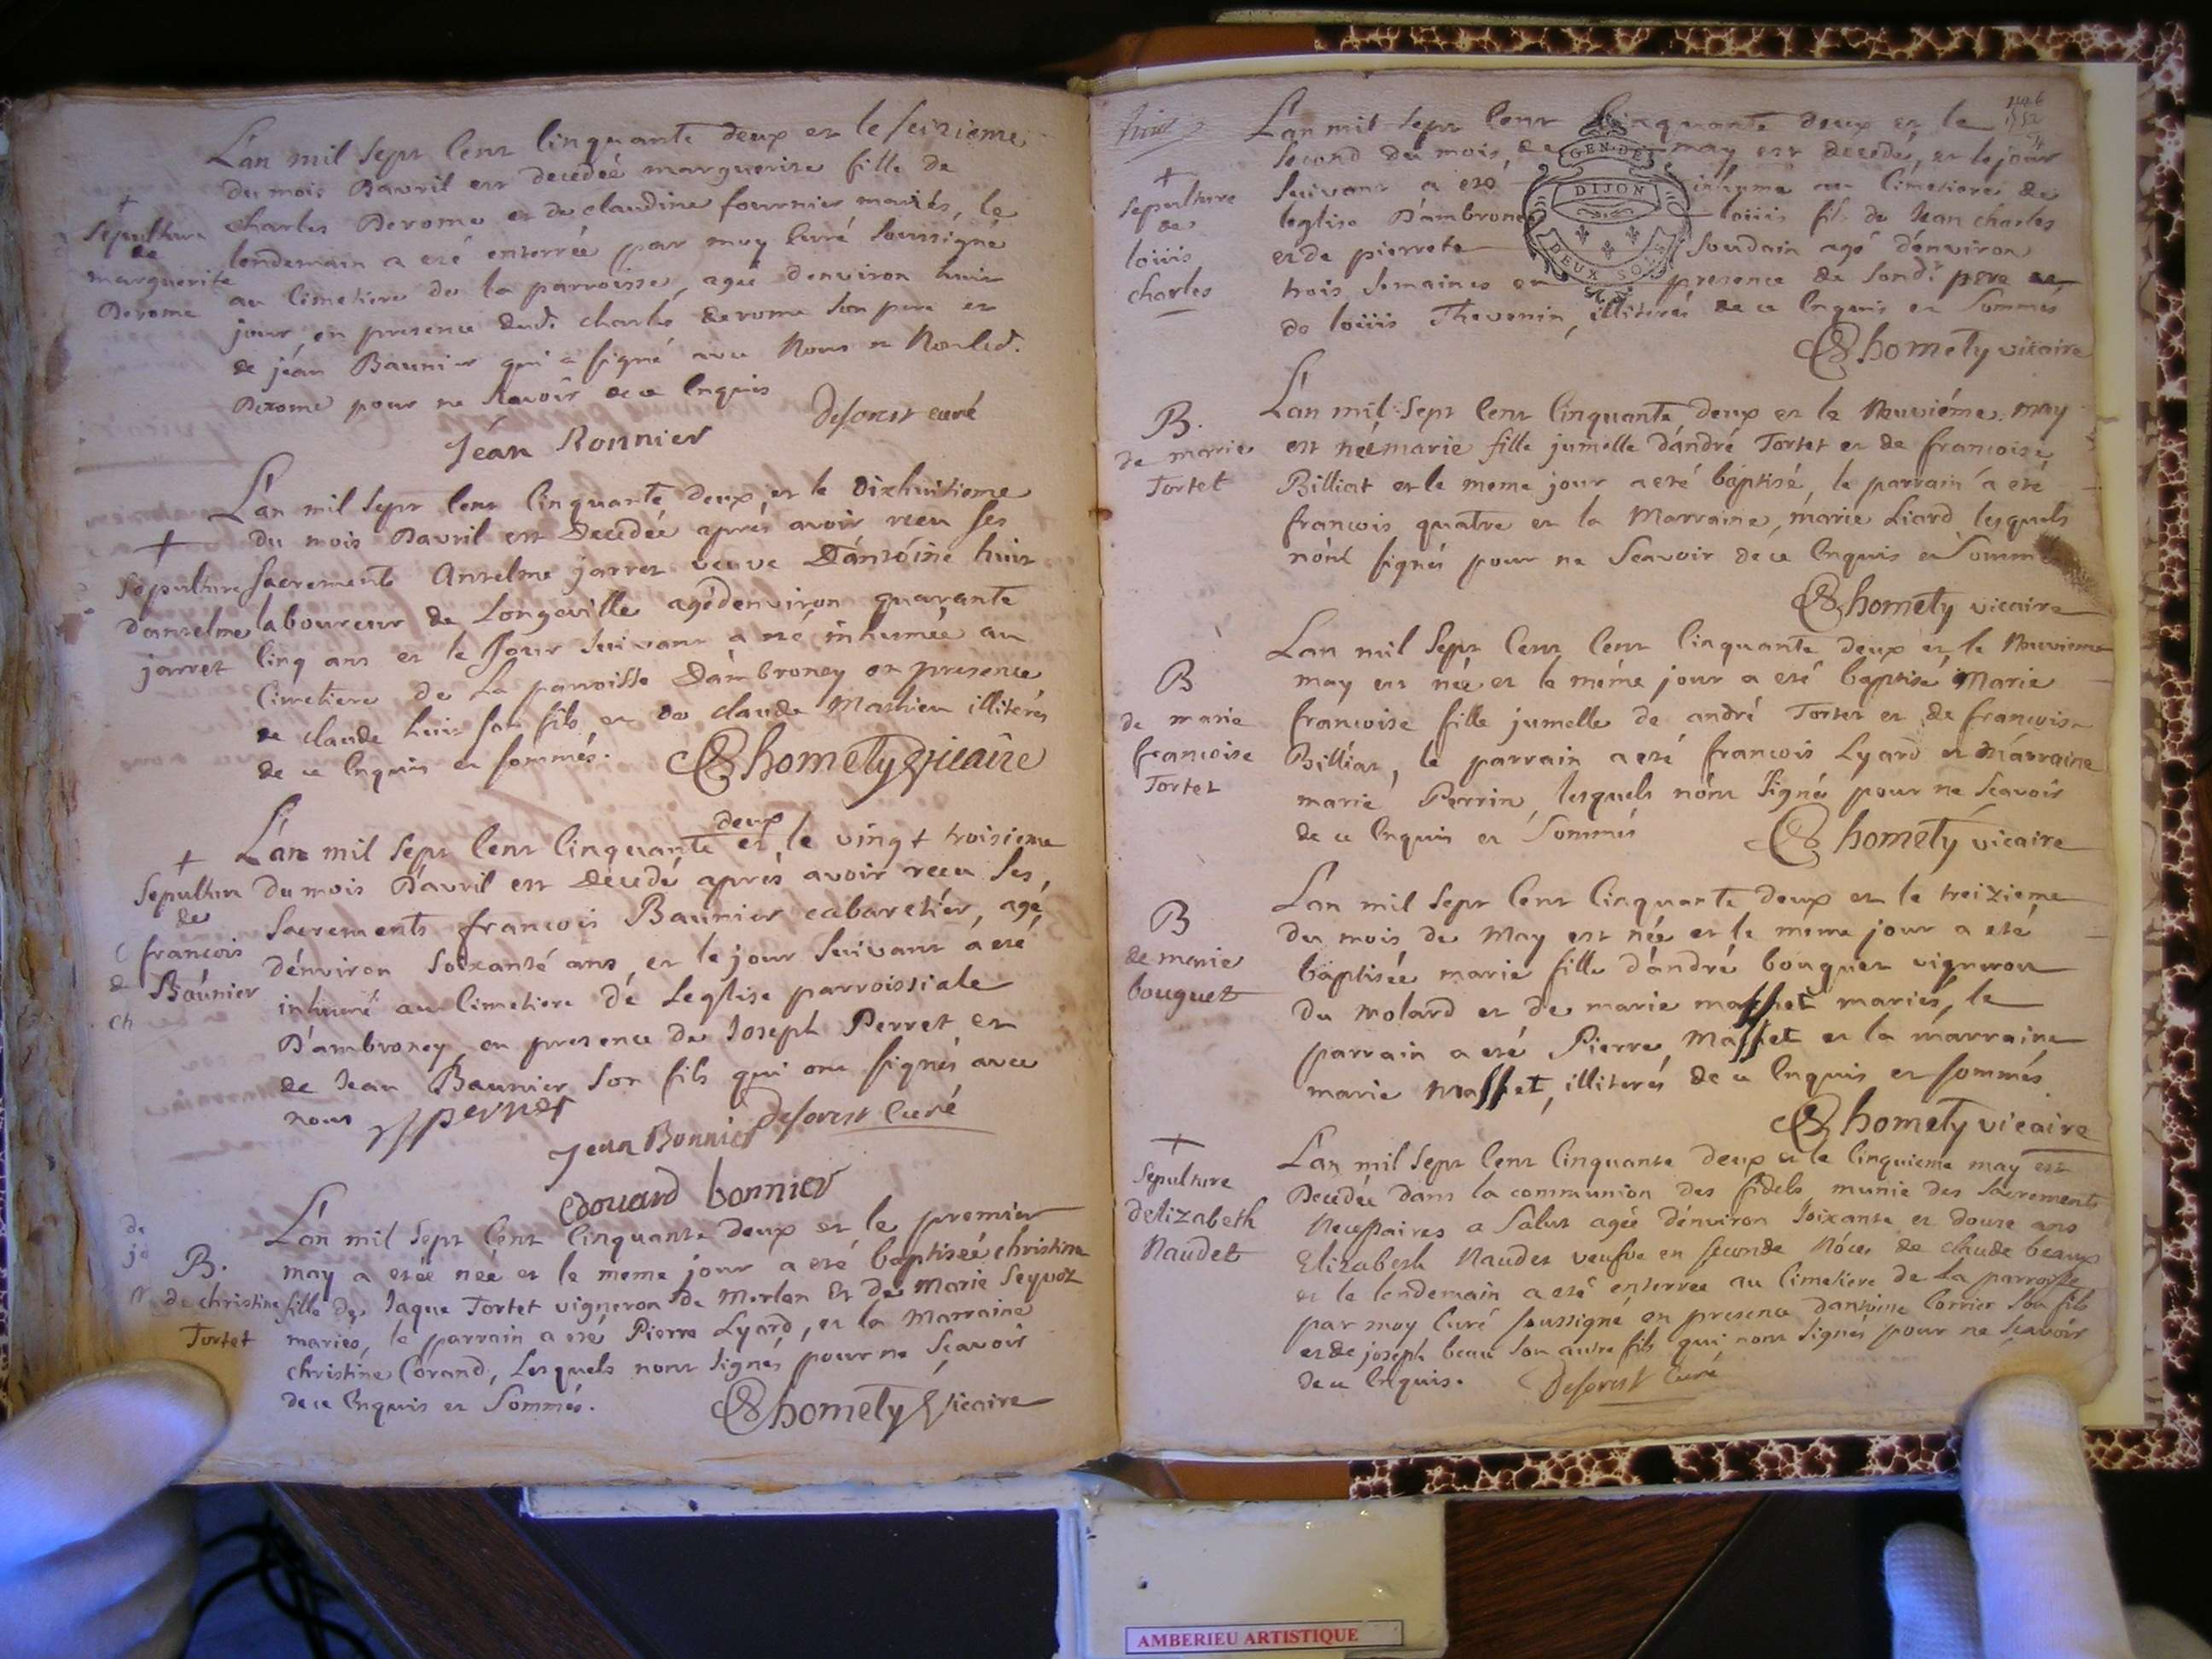 L'an mil sept cent cinquante deux et le seizieme
du mois D'avril est decedeé marguerite fille de
charles Derome et de claudine fournier mariés, le
lendemain a eté enterrée par moy curé soussigné
au cimetiere de la parroisse, agée d'environ huit
jour, en presence dud. charle derome son pere et
de jéan Baunier qui a signé avec Nous et Non led.
Derome pour ne scavoir de ce enquis
+
sépulture
de
marguerite
Derome
deforest curé
Jéan Bonnier
L'an mil sept cent cinquante deux et le dixhuitieme
du mois D'avril est Decedée aprés avoir receu ses
sacrements Anselme jarret veuve D'antóine huit
laboureur de Longeville agé d'environ quarante
cinq ans et le Jour suivant a eté inhumée au
cimetiere de La parroisse D'ambroney en présence
de claude huit son fils et de claude Mathieu illiterés
de ce enquis et sommés.
+
Sepulture
d'anselme
jarret
Chomety vicaire
deux
L'an mil sept cent cinquante et, le vingt troisieme
du mois D'avril est Decedé aprés avoir receu ses,
sacrements francois Baunier cabaretiér, agé,
d'énviron soixanté ans, et le jour suivant a eté
inhumé au cimetiere dé Leglise parroissiale
D'ambroney en presence de Joseph Perret et
de Jean Baunier son fils qui ont signés avec
nous
+
Sepulture
de
francois
Baúnier
J perret
Jean Bonnier
deforest Curé
edouard bonnier
L'an mil sept cent cinquante deux et le premier
may a etée neé et le meme jour a eté baptiseé christine
fille de Jaque Tortet vigneron de Merlan Et de Marie Seyvoz
mariés, le parrain a eté Pierre Lyard, et la Marraine
christine Corand, Lesquels n'ont signés pour ne Scavoir
de ce enquis et Sommés.
B.
de christine
Tortet
Chomety Vicaire
L'an mil sept cent cinquante deux et le
second du mois, de may est decedé, et le jour
suivant a eté inhumé au cimetiere de
leglise D'ambroney loüis fils de Jean charles
et de pierrete soudain agé d'énviron
trois semaines en presence de sond. pere et
de loüis Thevenin, illiterés de ce enquis et sommés
GEN. DE
DIJON
DEUX SOLS
+
sepulture
de
loüis
charles
Chomety vicaire
L'an mil sept cent cinquante deux et le Neuviéme may
est neé marie fille jumelle d'ándré Tortet et de francoise
Billiat et le meme jour a eté baptisé, le parrain a eté
francois quatre et la Marraine marie Liard lesquels
n'ónt signés pour ne Scavoir de ce enquis et Sommés
B.
de marie
Tortet
Chomety vicaire
L'an mil sept cent cent cinquante deux et le Neuvieme
may est née et le méme jour a eté baptisé Marie
francoise fille jumelle de andré Tortet et de francoise
Billiat, le parrain a eté francois Lyard et Marraine
marie Perrin, lesquels n'ónt signés pour ne scavoir
de ce enquis et Sommés
B
de marie
francoise
Tortet
Chomety vicaire
L'an mil sept cent cinquante deux et le treizieme
du mois de May est née et le meme jour a eté
baptisée marie fille d'ándré bouquet vigneron
du Molard et de marie masset mariés, le
parrain a eté Pierre Masset et la marraine
marie Masset, illiterés de ce enquis et sommés
B
de marie
bouquet
Chomety vicaire
L'an mil sept cent cinquante deux et le cinquieme may est
Decedée dans la communion des fidels munie des sacrements
Necessaires a Salut agée d'énviron soixante et douze ans
Elizabeth Naudet veufve en seconde Nóces de claude beaux
et le lendemain a eté enterrée au cimetiere de La parroisse
par moy curé soussigné en presence d'antoine Corrier son fils
et de joseph beau son autre fils qui n'ont signés pour ne scavoir
de ce enquis.
+
Sepulture
d'elizabeth
Naudet
Deforest Curé
AMBERIEU ARTISTIQUE